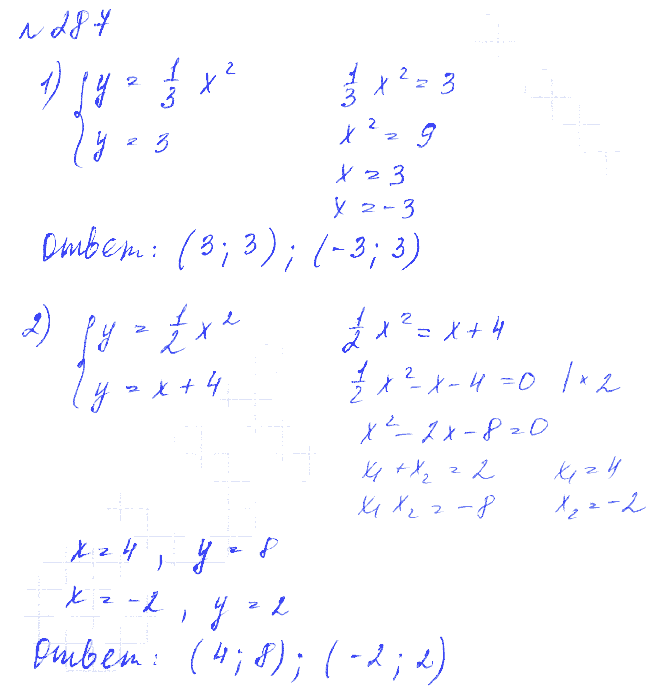 № 287
1) { y = 1/3 x² 1/3 x² = 3
y = 3 x² = 9
x = 3
x = -3
Ответ: (3; 3); (-3; 3)
2) { y = 1/2 x² 1/2 x² = x + 4
y = x + 4 1/2 x² - x - 4 = 0 | × 2
x² - 2x - 8 = 0
x₁ + x₂ = 2 x₁ = 4
x₁ x₂ = -8 x₂ = -2
x = 4, y = 8
x = -2, y = 2
Ответ: (4; 8); (-2; 2)